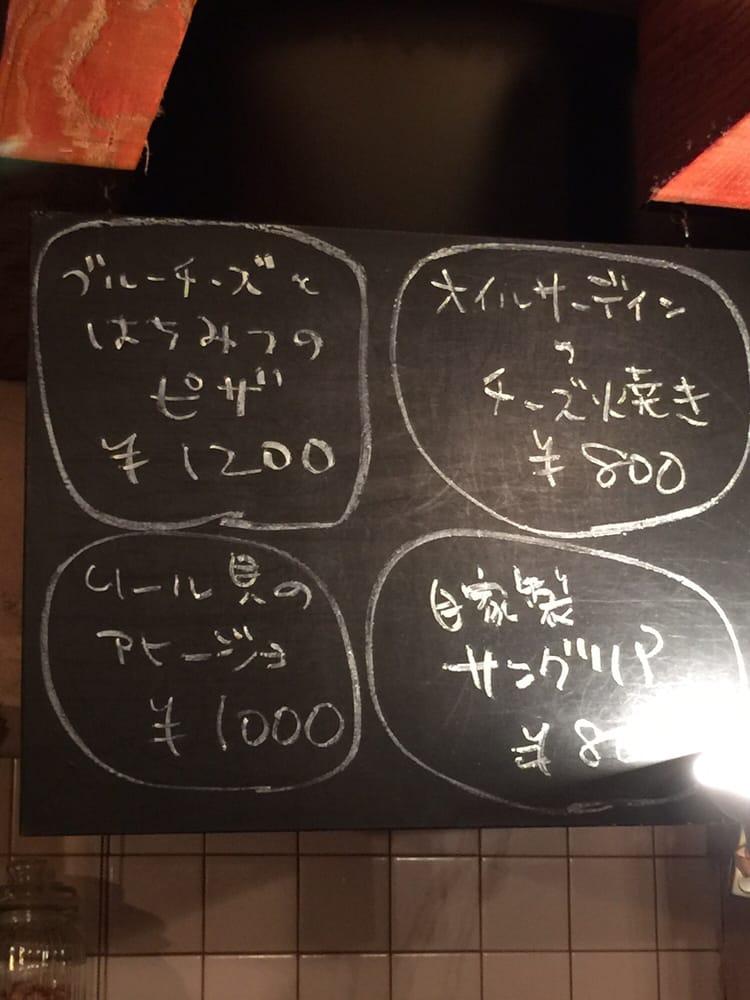 ブルーチーズと
はちみつの
ピザ
¥1200
オイルサーディン
の
チーズ焼き
¥800
ムール貝の
アヒージョ
¥1000
自家製
サングリア